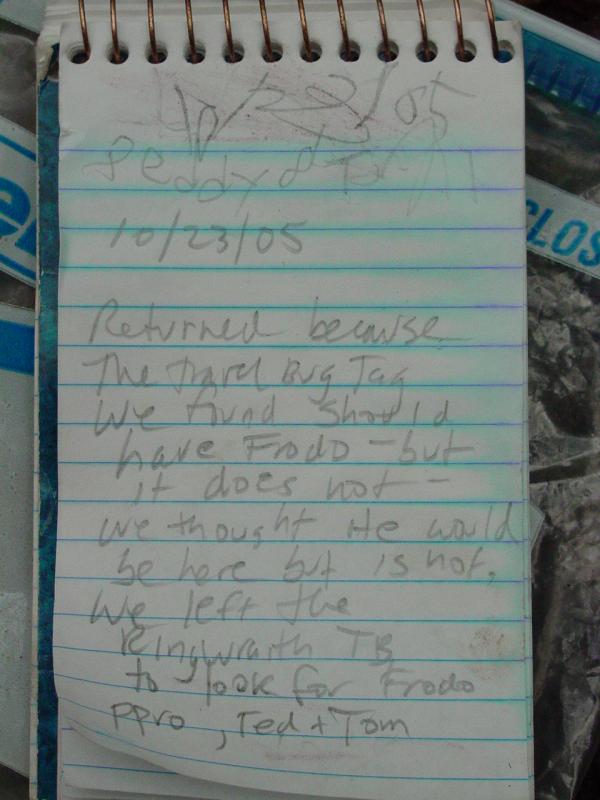 10/22/05
10/23/05
Returned because
The travel Bug Tag
We found should
have Frodo - but
it does not -
We thought He would
be here but is not.
We left the
Ringwraith TB
to look for Frodo
PPro, Ted + Tom
CLOS